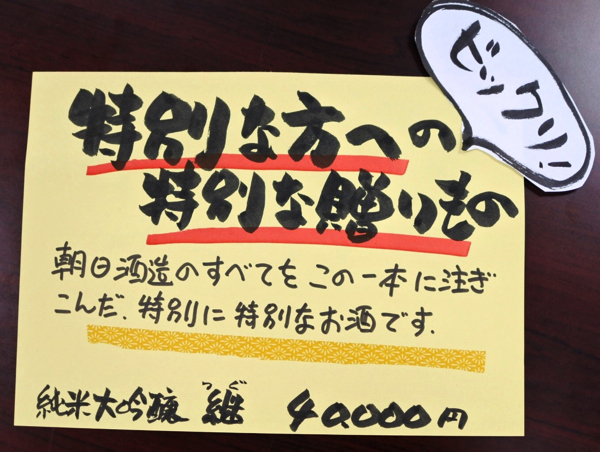 ビックリ!
特別な方への
特別な贈りもの
朝日酒造のすべてを この一本に注ぎ
こんだ、特別に特別なお酒です.
つぐ
純米大吟醸 継 40,000円